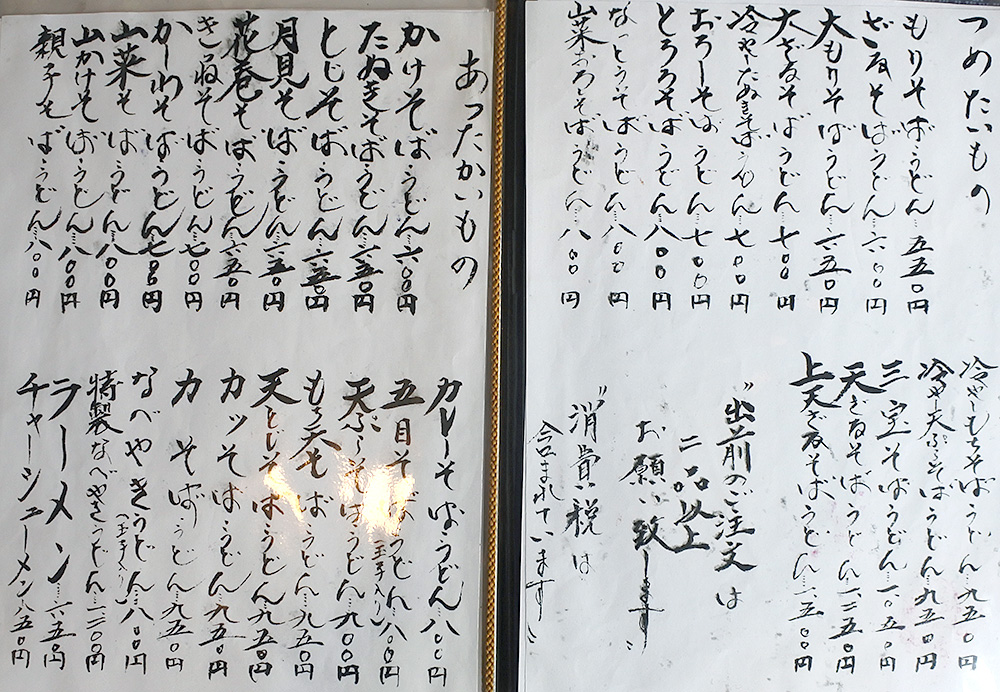 つめたいもの
もりそば・うどん…五五〇円
ざるそば・うどん…六〇〇円
大もりそば・うどん…六五〇円
大ざるそば・うどん…七〇〇円
冷やしたぬきそば・うどん…七〇〇円
おろしそば・うどん…七〇〇円
とろろそば・うどん…八〇〇円
なっとうそば・うどん…八〇〇円
山菜おろそば・うどん…八〇〇円
冷やしもちそば・うどん…九五〇円
冷や天ぷらそば・うどん…九五〇円
三宝そば・うどん…一〇五〇円
天ざるそば・うどん…一二五〇円
上天ざるそば・うどん…一五〇〇円
"出前のご注文は
二品以上
お願い致します"
"消費税は
含まれています"
あったかいもの
かけそば・うどん…六〇〇円
たぬきそば・うどん…六五〇円
とじそば・うどん…六五〇円
月見そば・うどん…六五〇円
花巻そば・うどん…六五〇円
きつねそば・うどん…七〇〇円
かしわそば・うどん…七〇〇円
山菜そば・うどん…八〇〇円
山かけそば・うどん…八〇〇円
親子そば・うどん…八〇〇円
カレーそば・うどん…八〇〇円
五目そば・うどん(玉子入り)…八〇〇円
天ぷらそば・うどん…九〇〇円
もち天そば・うどん…九五〇円
天とじそば・うどん…九五〇円
カツそば・うどん…九五〇円
カそば・うどん…九五〇円
なべやきうどん(玉子入り)…八〇〇円
特製なべやきうどん…一二〇〇円
ラーメン…六五〇円
チャーシューメン…八五〇円